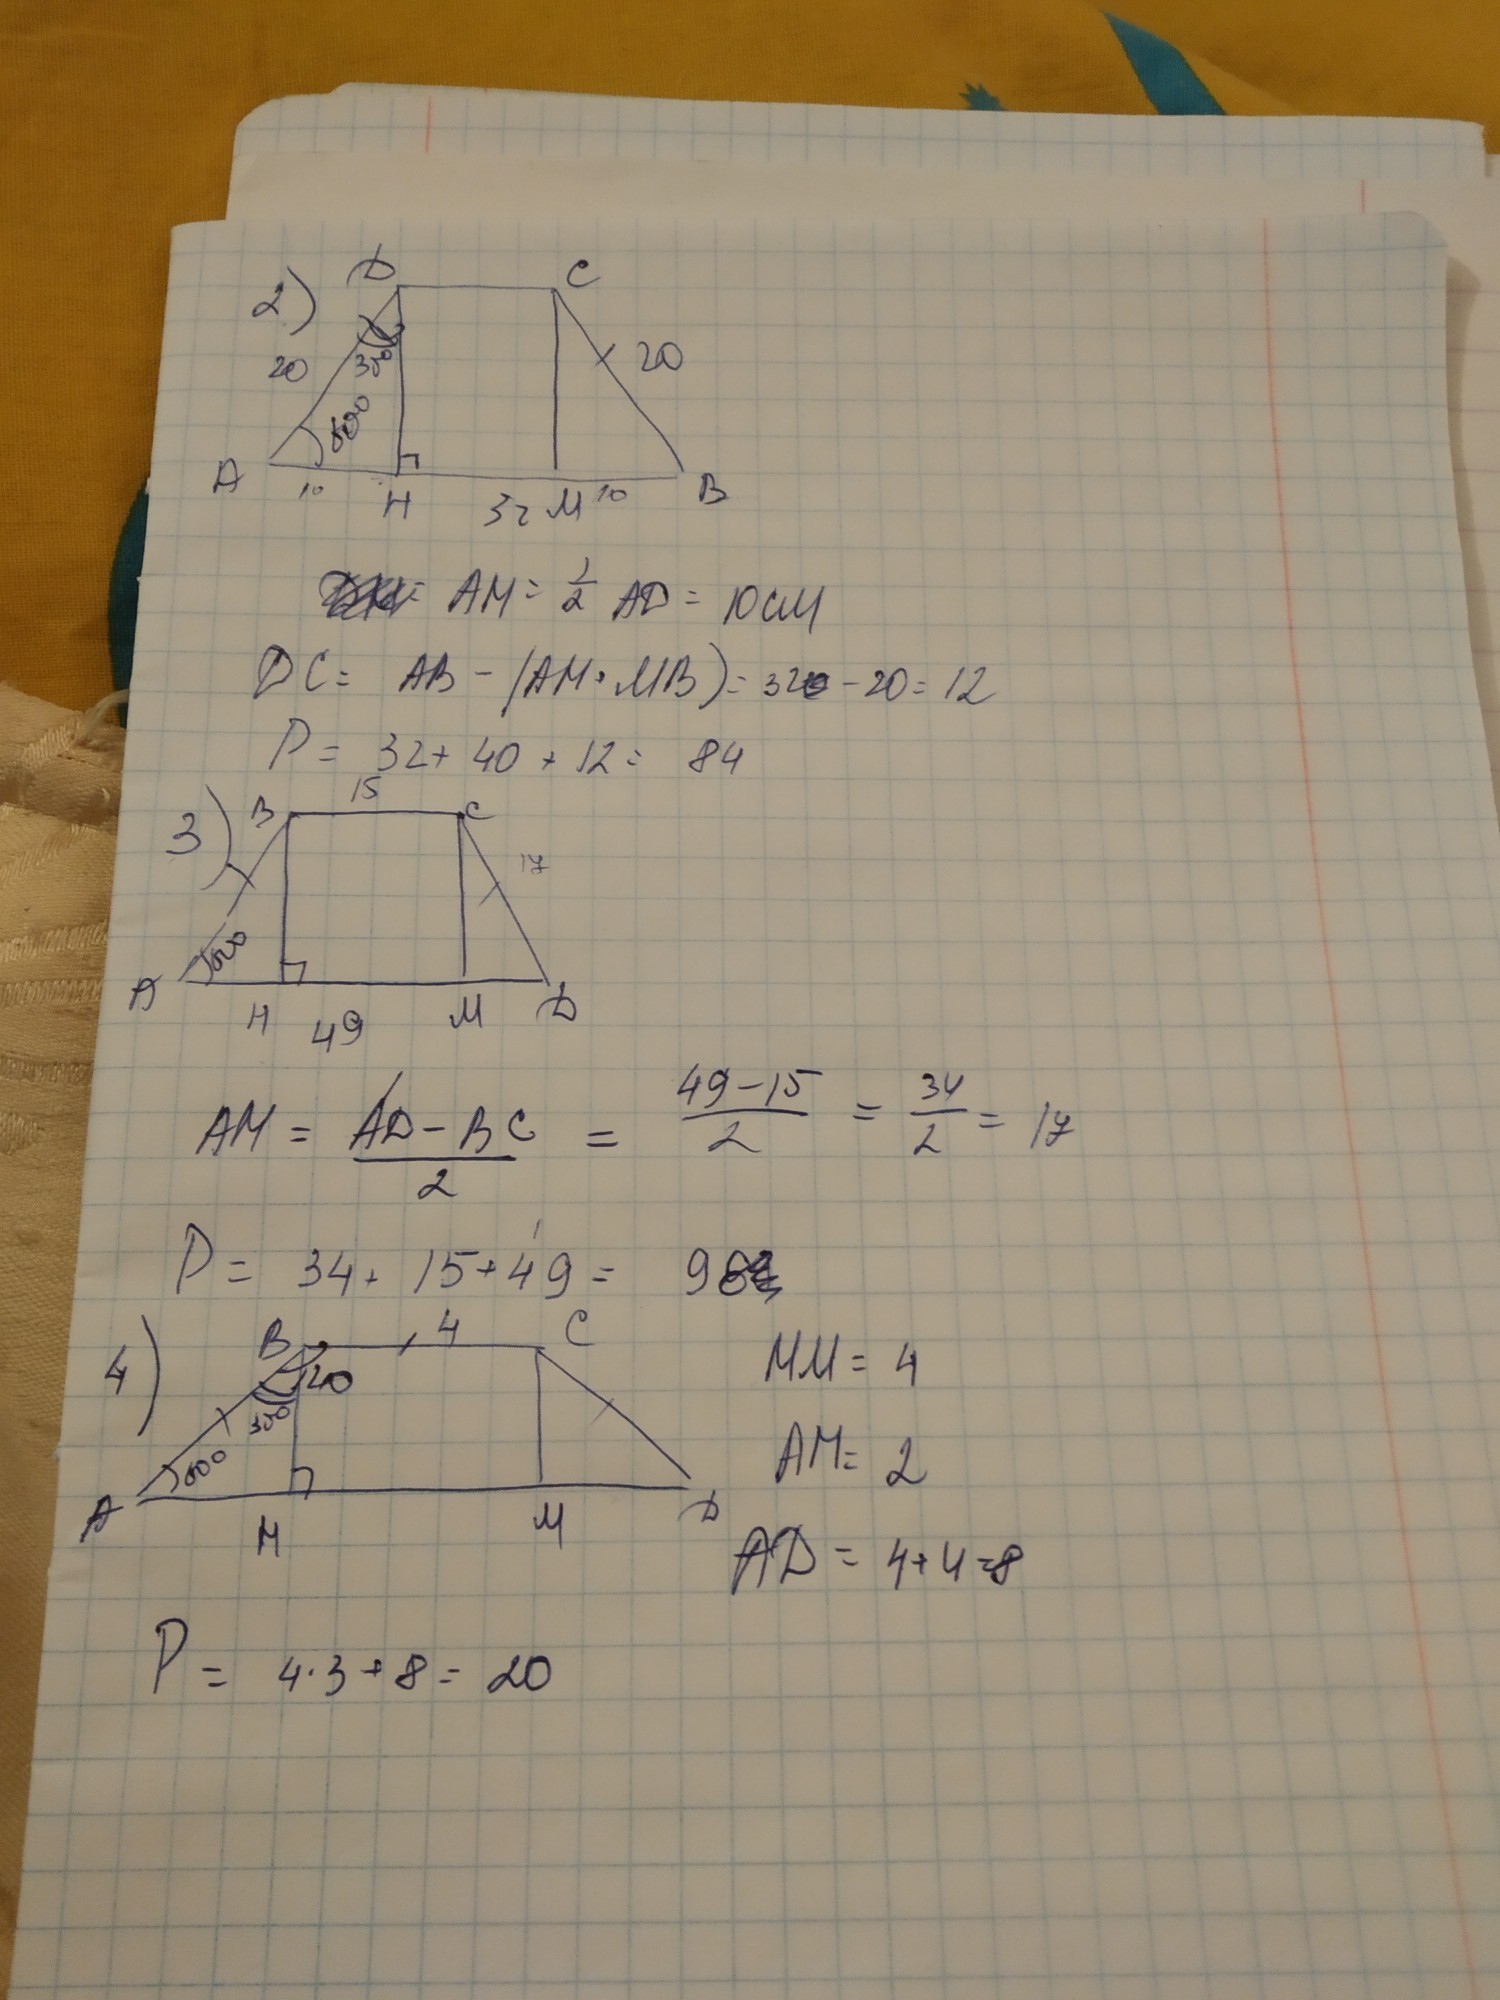 2)
D C
20 30° 20
60°
A 10 H 32 M 10 B
AH = 1/2 AD = 10 см
DC = AB - (AH + MB) = 32 - 20 = 12
P = 32 + 40 + 12 = 84
3)
B 15 C
17
60°
A H 49 M D
AH = AD - BC / 2 = 49 - 15 / 2 = 34 / 2 = 17
P = 34 + 15 + 49 = 98
4)
B 4 C
120
30°
60°
A H M D
HM = 4
AH = 2
AD = 4 + 4 = 8
P = 4 · 3 + 8 = 20